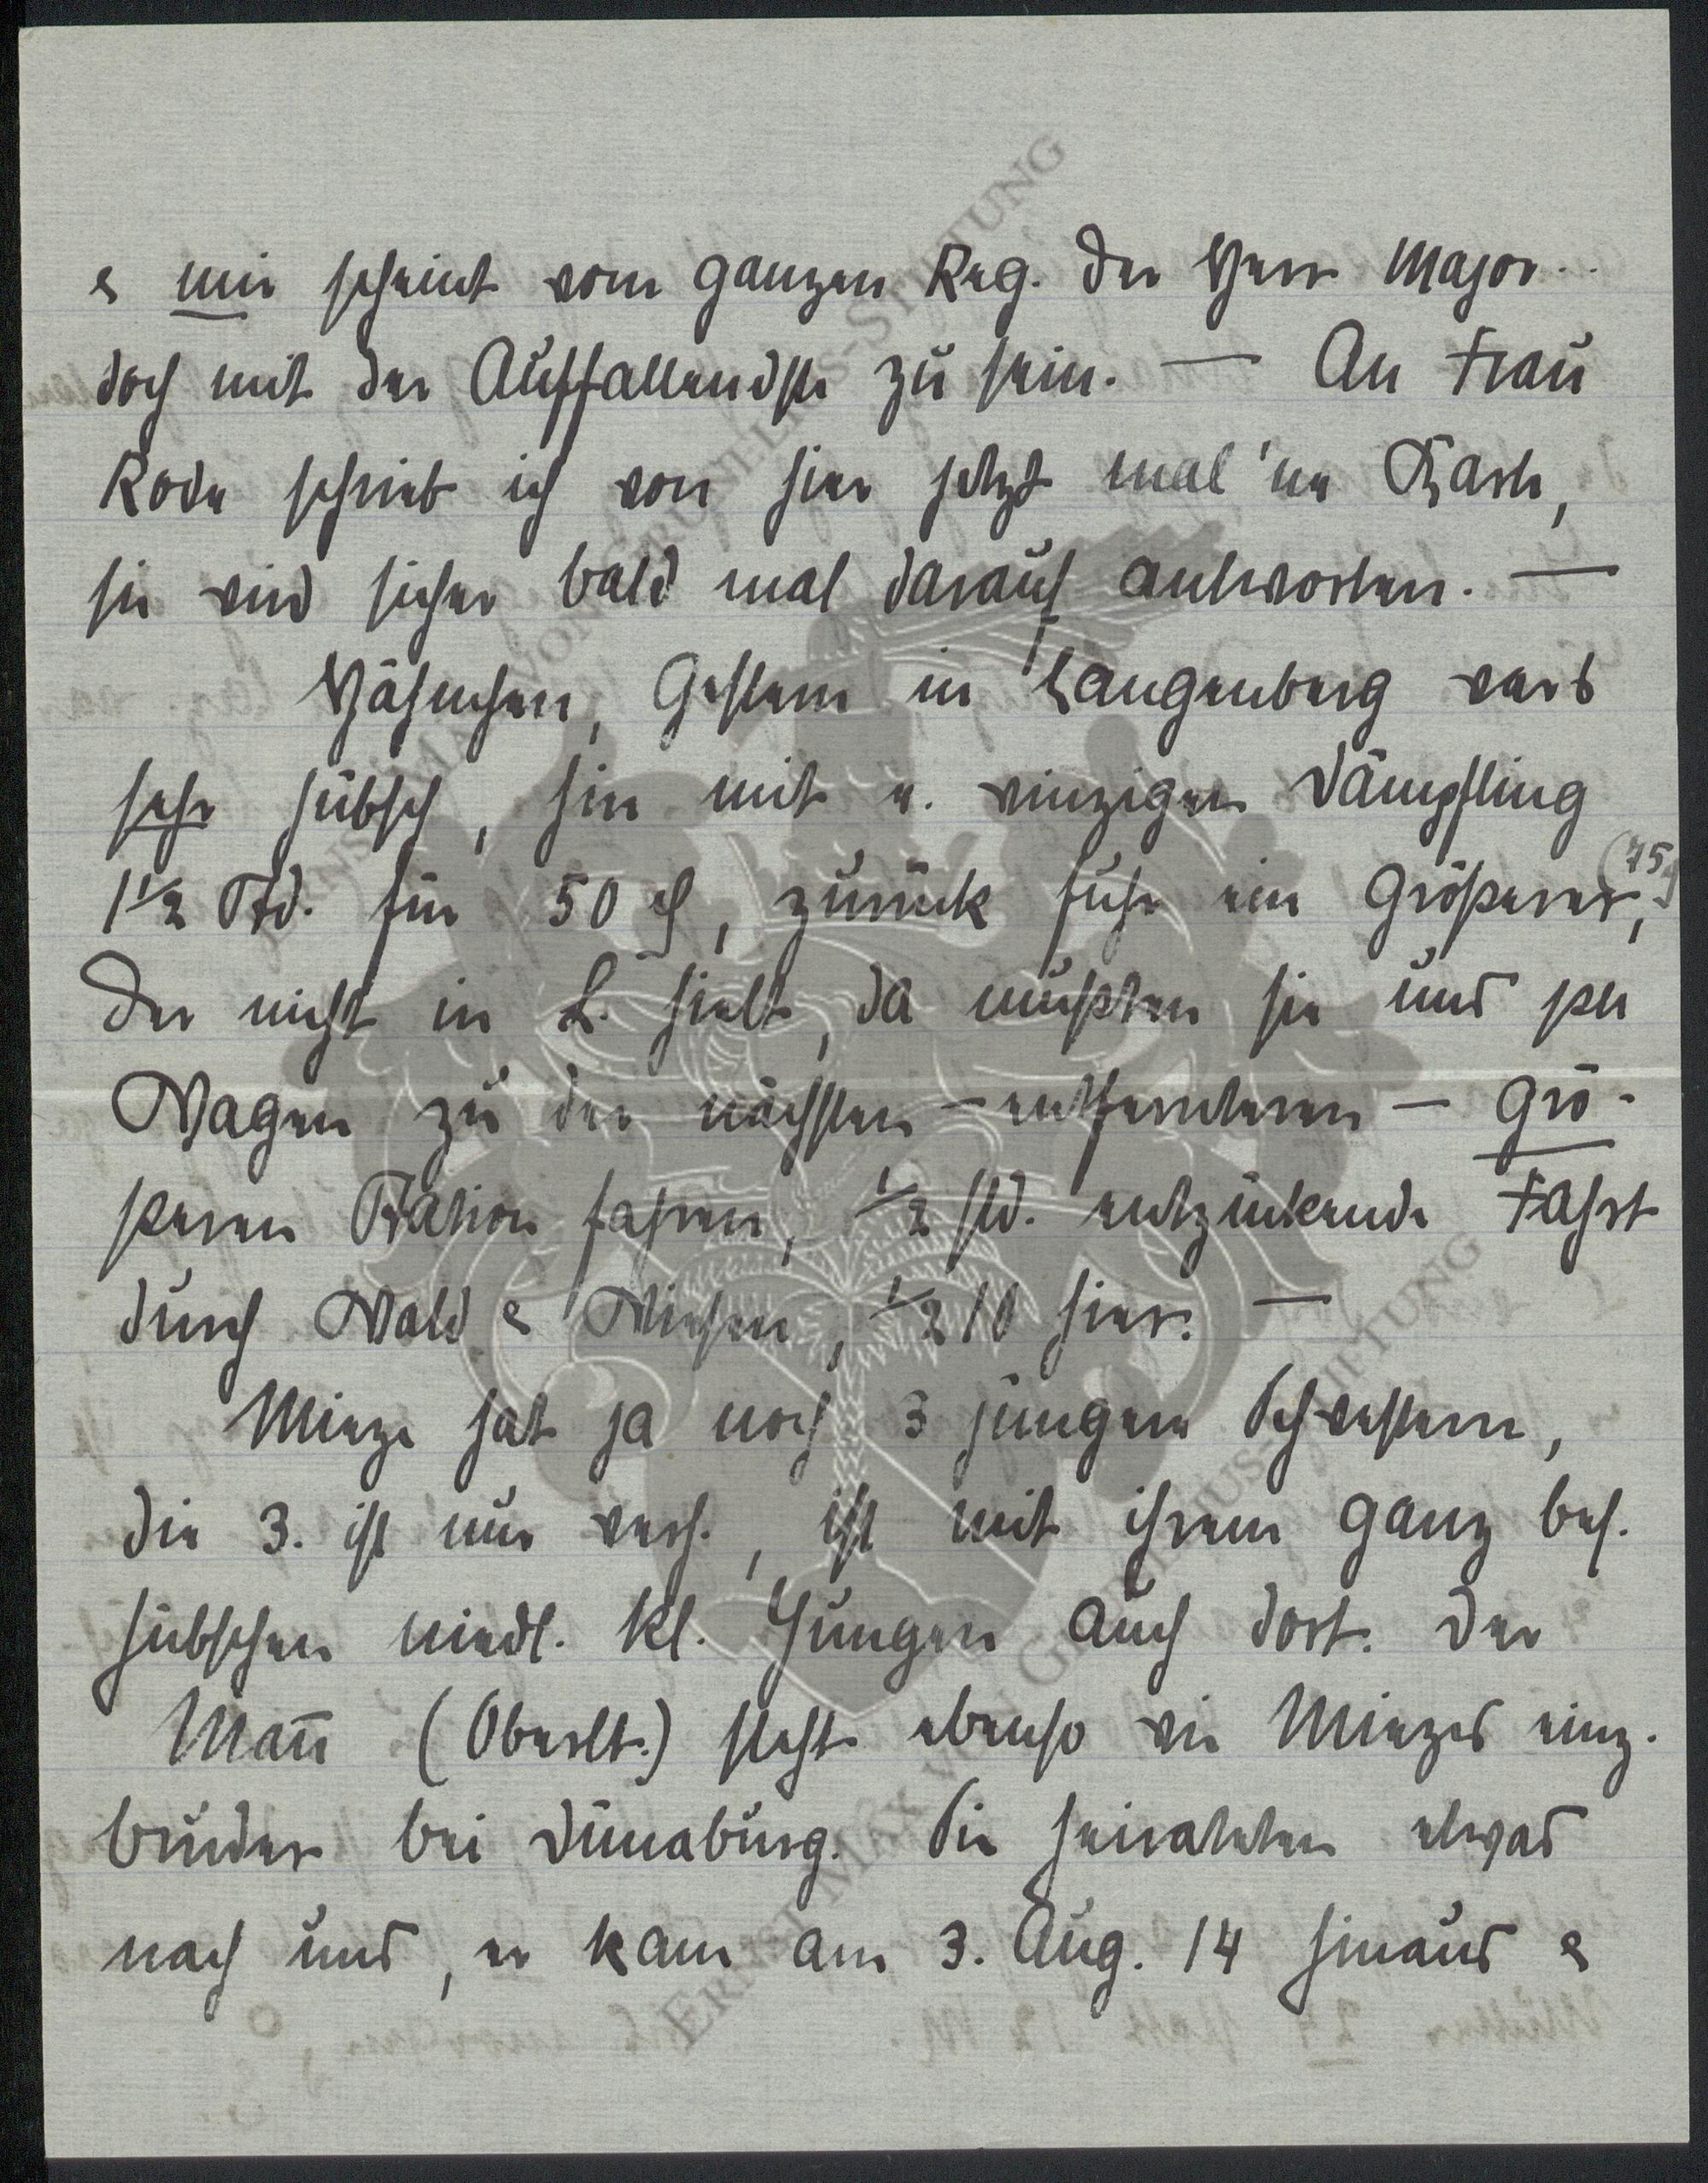 & mir scheint vom ganzen Reg. der Herr Major..
doch mit der Auffallendste zu sein. — An Frau
Rode schrieb ich von hier jetzt mal 'ne Karte,
sie wird sicher bald mal darauf antworten. —
Häschen, Gestern in Langenberg war's
sehr hübsch, hin mit e. winzigen Dämpfling
1½ Std. für 50 ₰, zurück fuhr ein Größerer, (75)
der nicht in L. hielt, da mußten sie uns per
Wagen zu der nächsten – entfernteren – grö-
ßeren Station fahren, ½ std. entzückende Fahrt
durch Wald & Wiesen, ½ 10 hier. —
Mieze hat ja noch 3 jüngere Schwestern,
die 3. ist nur verh., ist mit ihrem ganz bes.
hübschen niedl. kl. Jungen auch dort. Der
Man̄ (Oberlt.) steht ebenso wie Miezes einz.
bruder bei Dünaburg. Sie heirateten etwas
nach uns, er kam am 3. Aug. 14 hinaus &
ERNST MAX VON GRUNELIUS-STIFTUNG
ERNST MAX VON GRUNELIUS-STIFTUNG